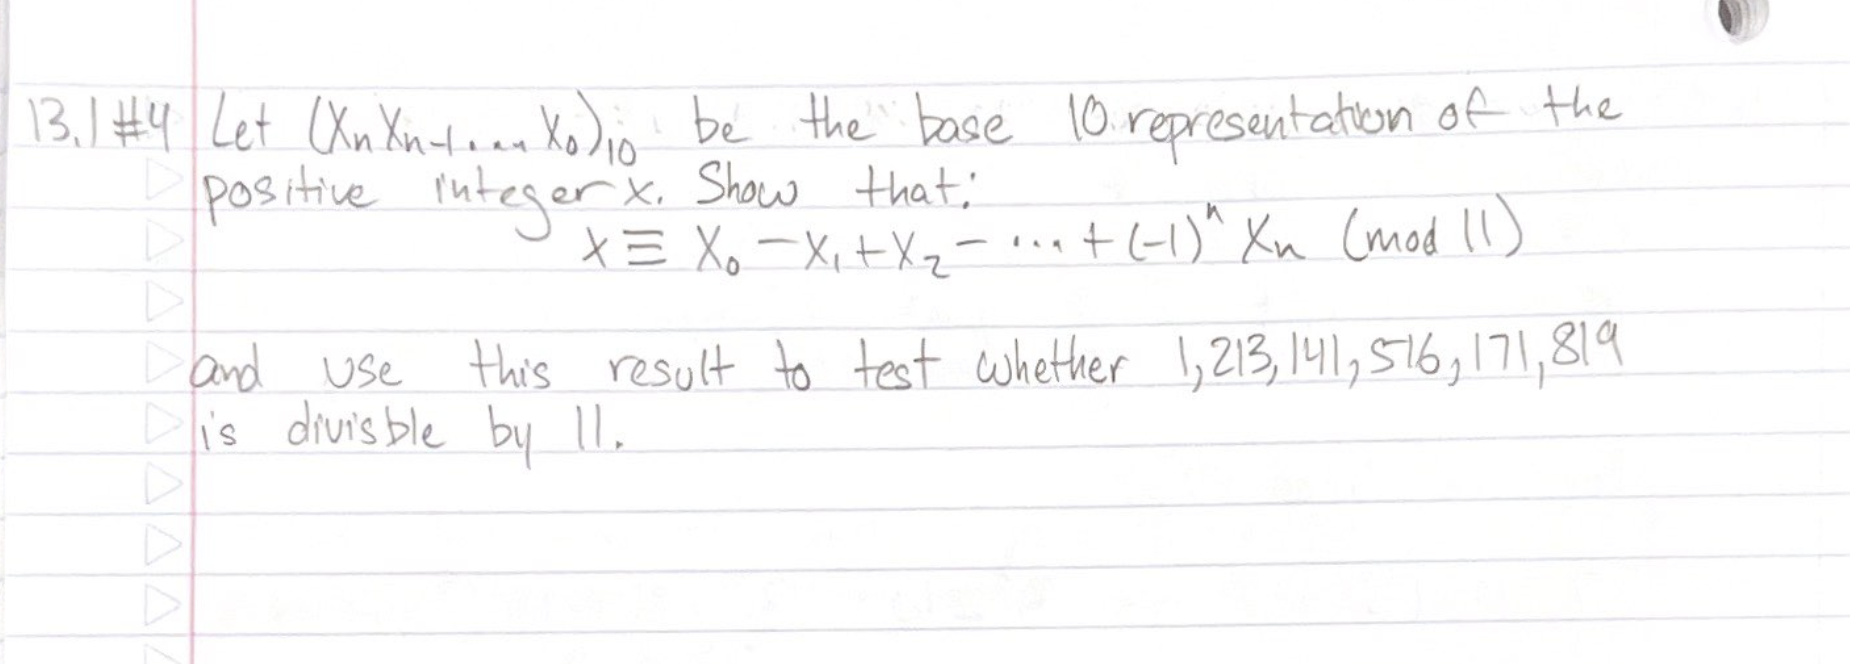 13.1 #4 Let (XnXn-1.... X₀)₁₀ be the base 10 representation of the
positive integer x. Show that:
x ≡ X₀ - X₁ + X₂ - ... + (-1)ⁿ Xn (mod 11)
and use this result to test whether 1,213,141,516,171,819
is divisble by 11.